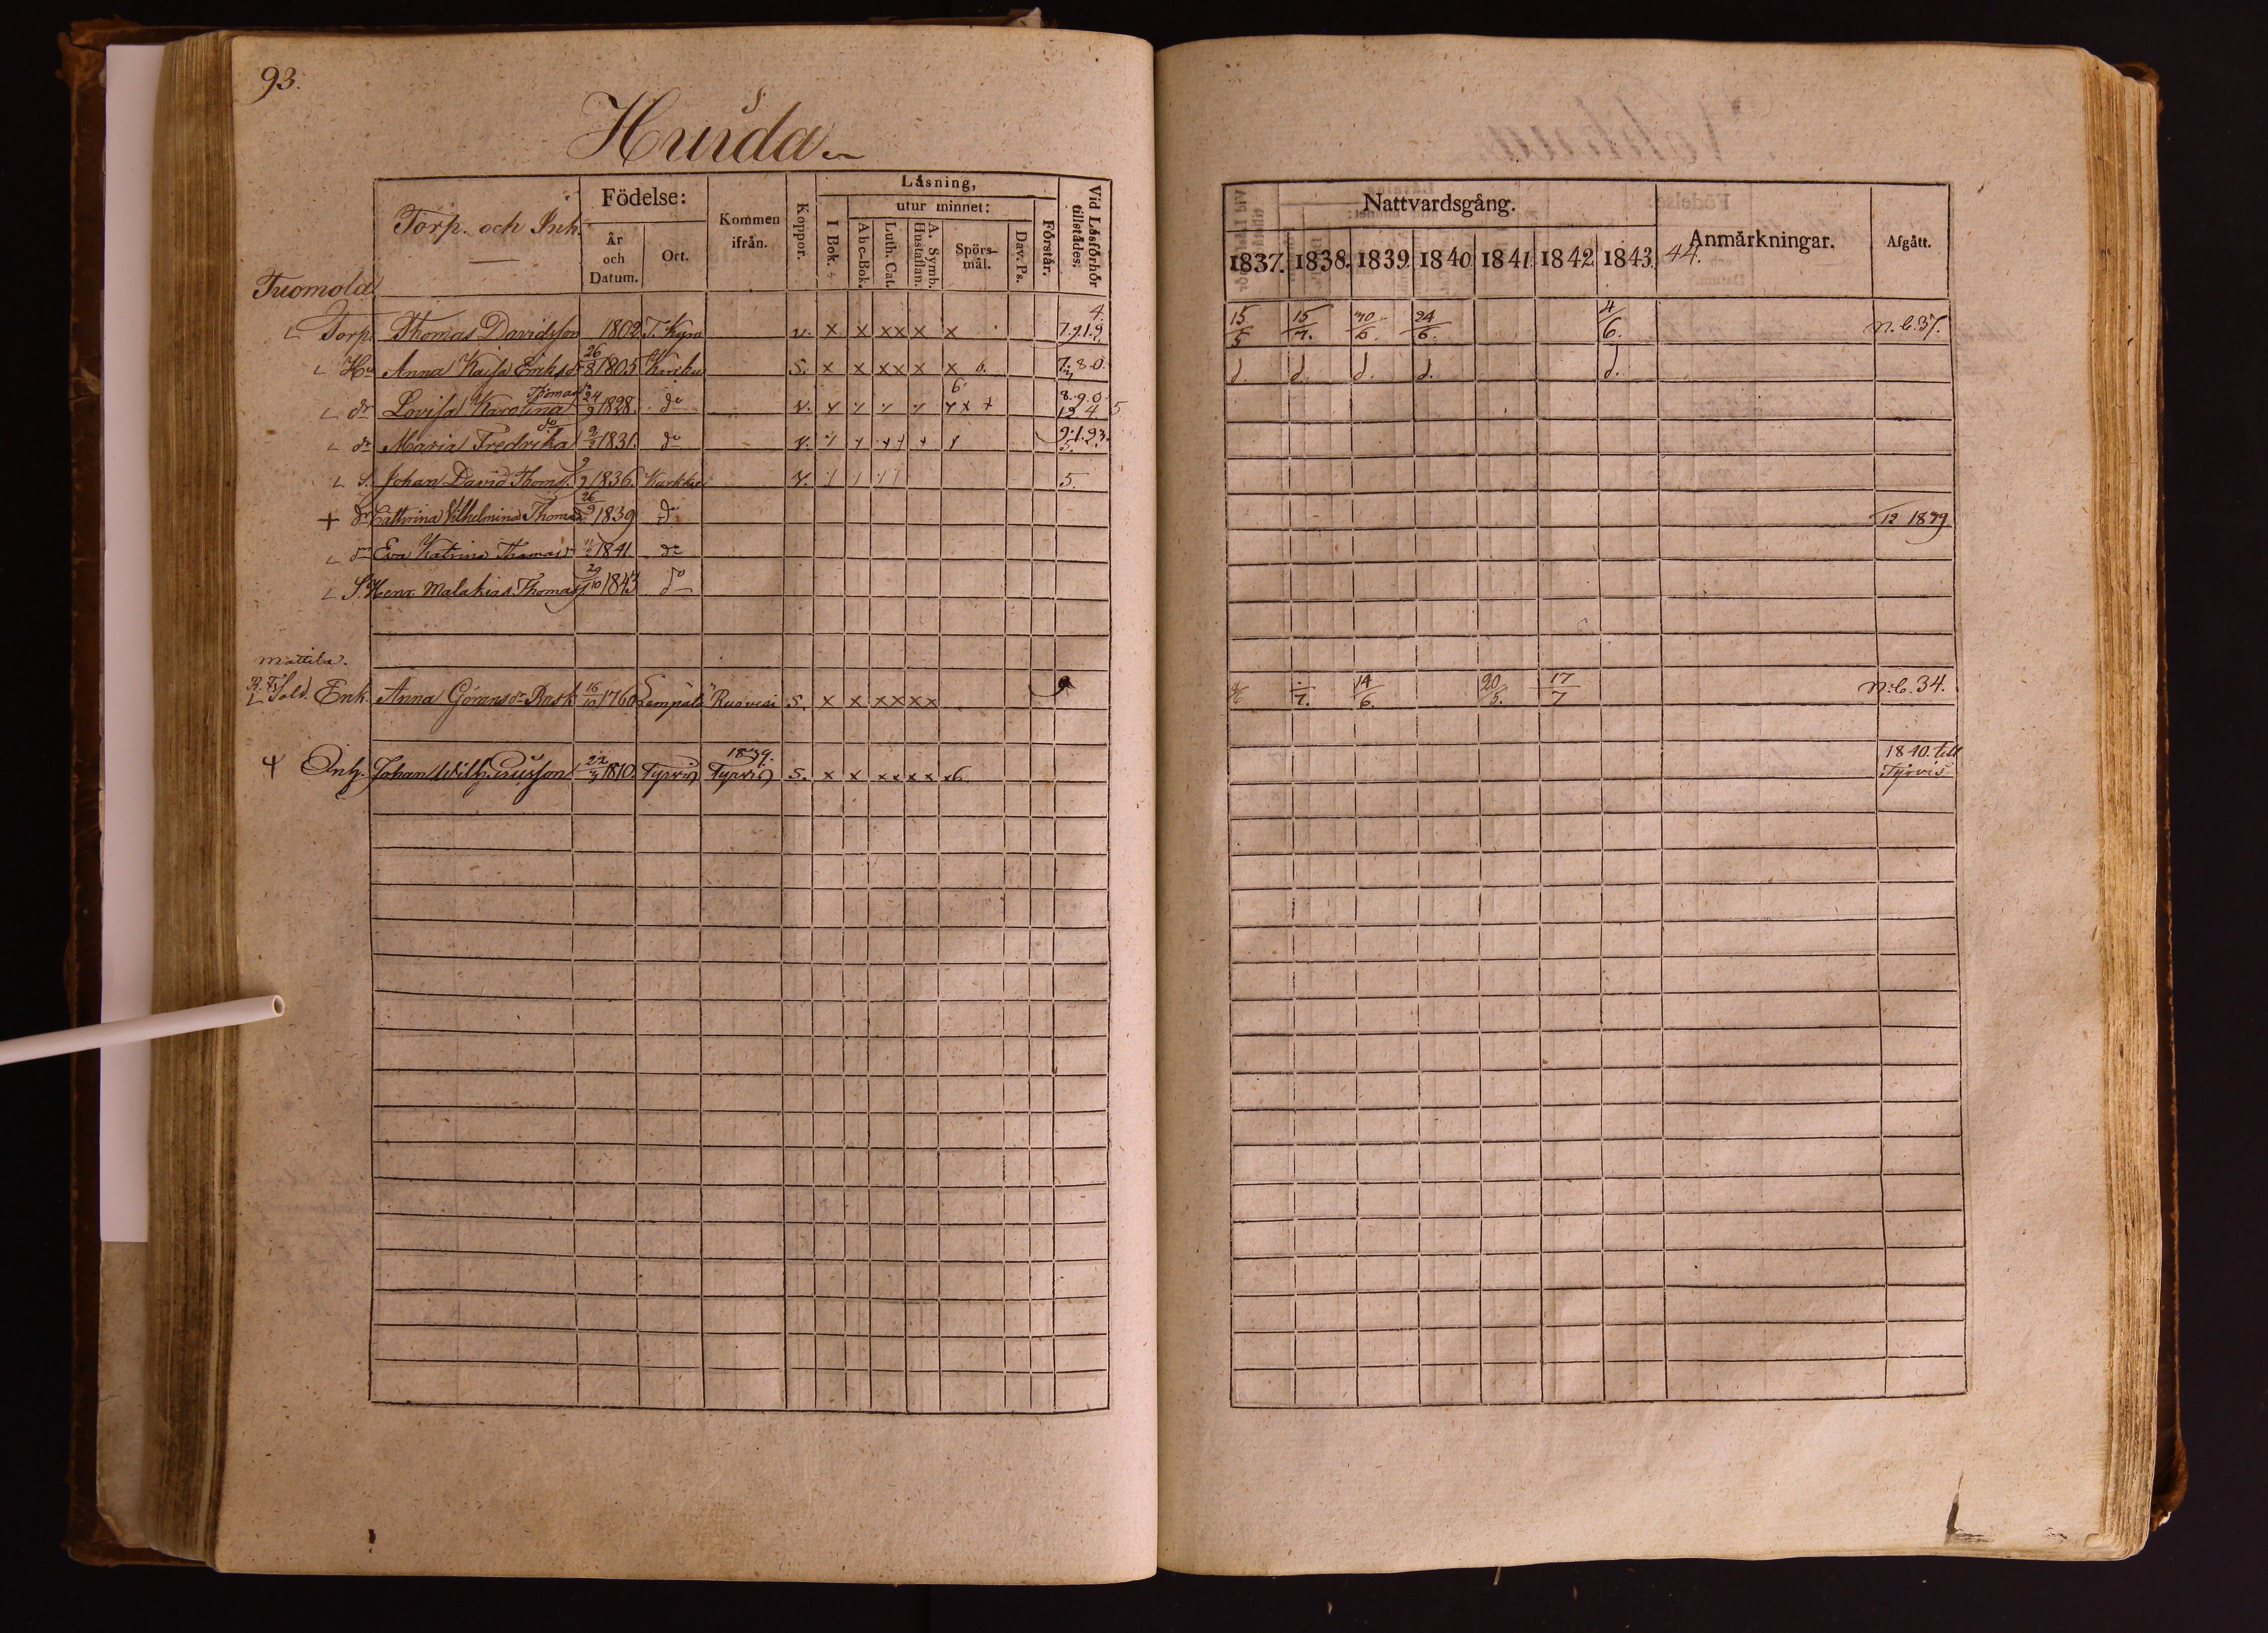 93.
Huida
Torp. och Inh.
Födelse:
År och Datum.
Ort.
Kommen ifrån.
Koppor.
Läsning,
I Bok.
utur minnet:
Abc-Bok.
Luth. Cat.
A. Symb. Hustaflan.
Spörs-mål.
Dav. Ps.
Förstår.
Vid Läsförhör tillstädes:
Nattvardsgång.
1837. 1838. 1839 1840 1841 1842 1843. 44.
Anmärkningar.
Afgått.
Tuomola
Torp. Thomas Davidsson 1802 T. Kyro v. x x xx x x 4. 7.9.1.9. 15/5 15/7. 30/6. 24/6. 4/6. n.b. 37.
Hu Anna Kaisa Eriksdr 26/3 1805 s. x x xx x x 6. 7. 8.0. d. d. d. d. d.
dr Lovisa Karolina Thomasdr 24/9 1828. do v. 6. 8.9.0. 12.4. 5
dr Maria Fredrika do 2/2 1831. do v. 9.1.23. 5.
S. Johan David Thoms. 9/9 1836. Karkku v. 5.
+ dr Cathrina Vilhelmina Thomasdr 26/9 1839 do 12 1839
dr Eva Katrina Thomasdr 11/2 1841. do
S. Henr. Malakias Thomass. 29/10 1843 do
Mattila.
Sold. Enk. Anna Göransdr Rask 16/10 1760 Lempälä Ruovesi s. x x xx xx 9 /7. 14/6. 20/5. 17/7 n.b. 34.
Inh. Johan Wilh. 22/3 1810. Tyrvis 1839. Tyrvis s. x x xx x x x6. 1840. till Tyrvis